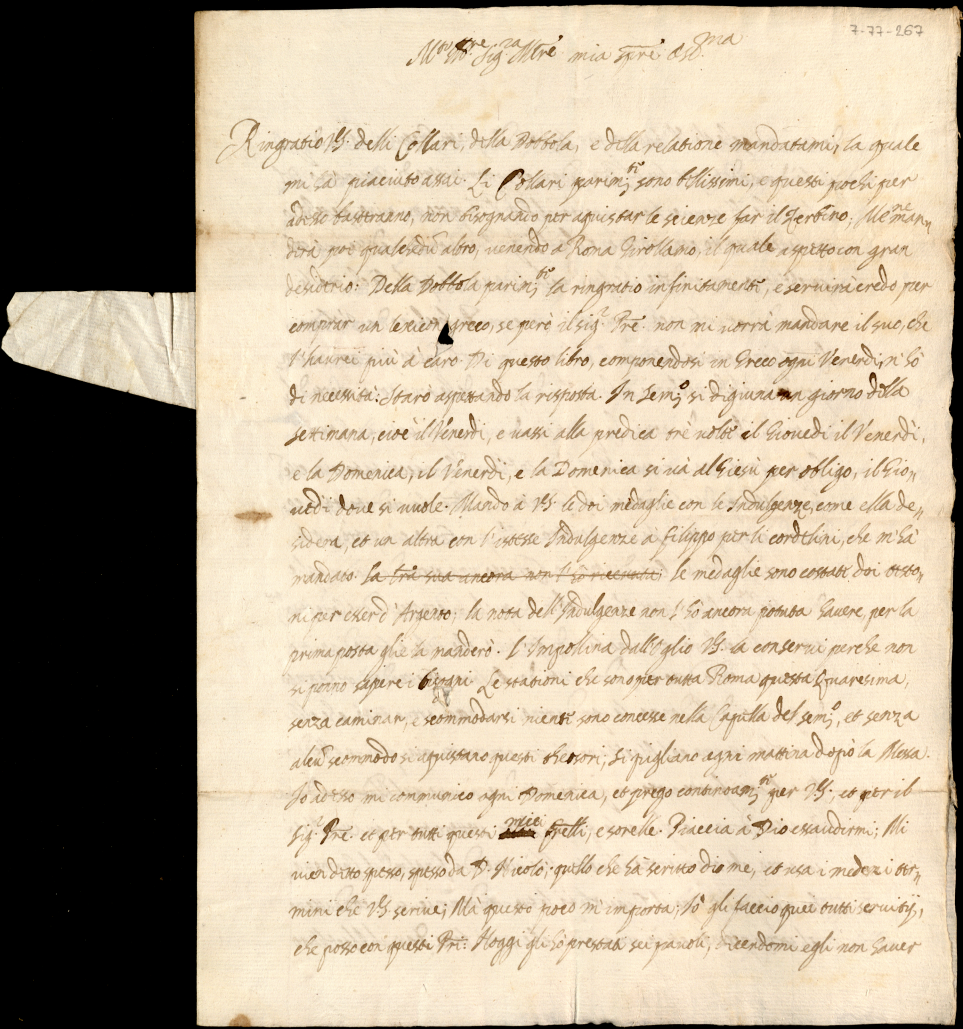 7-77-267
Sig.ra Mre mia
Ringratio V.S. delli Collari, della Dobbola, e della relatione mandatami, la quale
mi hà piaciuto assai. Li Collari parim.te sono bellissimi, e questi pochi per
adesso basteranno, non bisognando per aquistar le scienze far il Zerbino; Me ne man-
derà poi qualched'un altro, venendo à Roma Girollamo, il quale aspetto con gran
desiderio: Della Dobbola parim.te la ringratio infinitamente, e servirà credo per
comprar un lexicon greco, se però il sig.r Pre non mi vorrà mandare il suo, che
l'haurei più à caro. Di questo libro, componendosi in Greco ogni Venerdi, n'hò
di necessità: Starò aspettando la risposta. In Sem.o si digiuna un giorno della
settimana, cioè il Venerdi, e vassi alla predica trè volte il Giovedi il Venerdi,
e la Domenica, il Venerdi, e la Domenica si và al Giesù per obligo, il Gio-
vedi dove si vuole. Mando à V.S. le doi medaglie con le Indulgenze, come ella de-
sidera, et un altra con l'istesse Indulgenze à Filippo per li cordelini, che m'hà
mandato. La l̃ra sua ancora non l'hò ricevuta; le medaglie sono costate doi testo-
ni per esser d'Argento; la nota dell'Indulgenze non l'hò ancora potuta havere, per la
prima posta glie la manderò. L'Impollina dall'oglio V.S. la conservi perche non
si ponno sapere i bisogni. Le stationi che sono per tutta Roma questa Quaresima,
senza caminar, e scommodarsi niente sono concesse nella Capella del sem.o, et senza
alcun scommodo si aquistano questi thesori; Si pigliano ogni mattina dopò la Messa.
Io adesso mi communico ogni Domenica, et prego continoam.te per V.S., et per il
sig.r Pre et per tutti questi miei frelli, e sorelle. Piaccia à Dio essaudirmi; Mi
vien detto spesso, spesso da D. Nicolò quello che hà scritto di me, et usa i medemi ter-
mini che V.S. scrive; Mà questo poco m'importa; Io gli faccio quei tutti servitij,
che posso con questi Pri: Hoggi gli hò prestati sei pauoli, dicendomi egli non haver